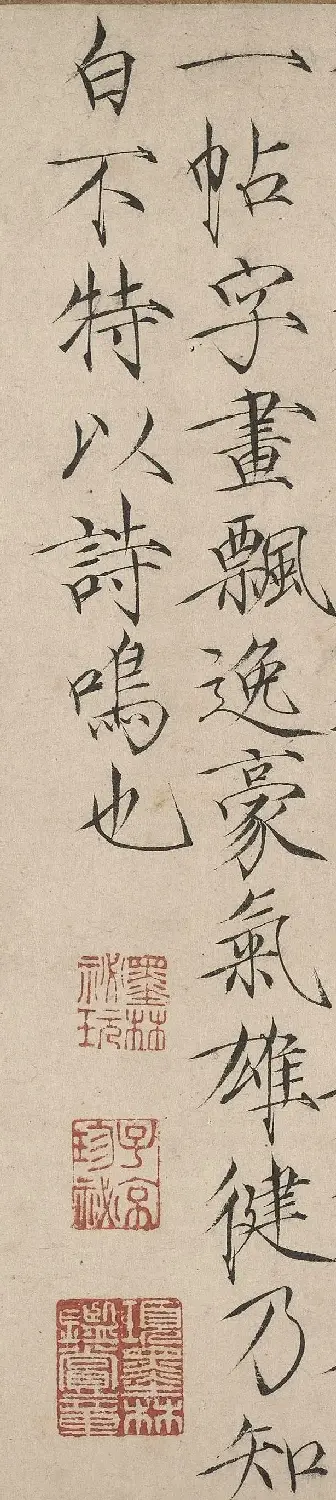 一帖字畫飄逸豪氣雄健乃知
白不特以詩鳴也
墨林
祕玩
子京
珍祕
項墨林
鑑賞章